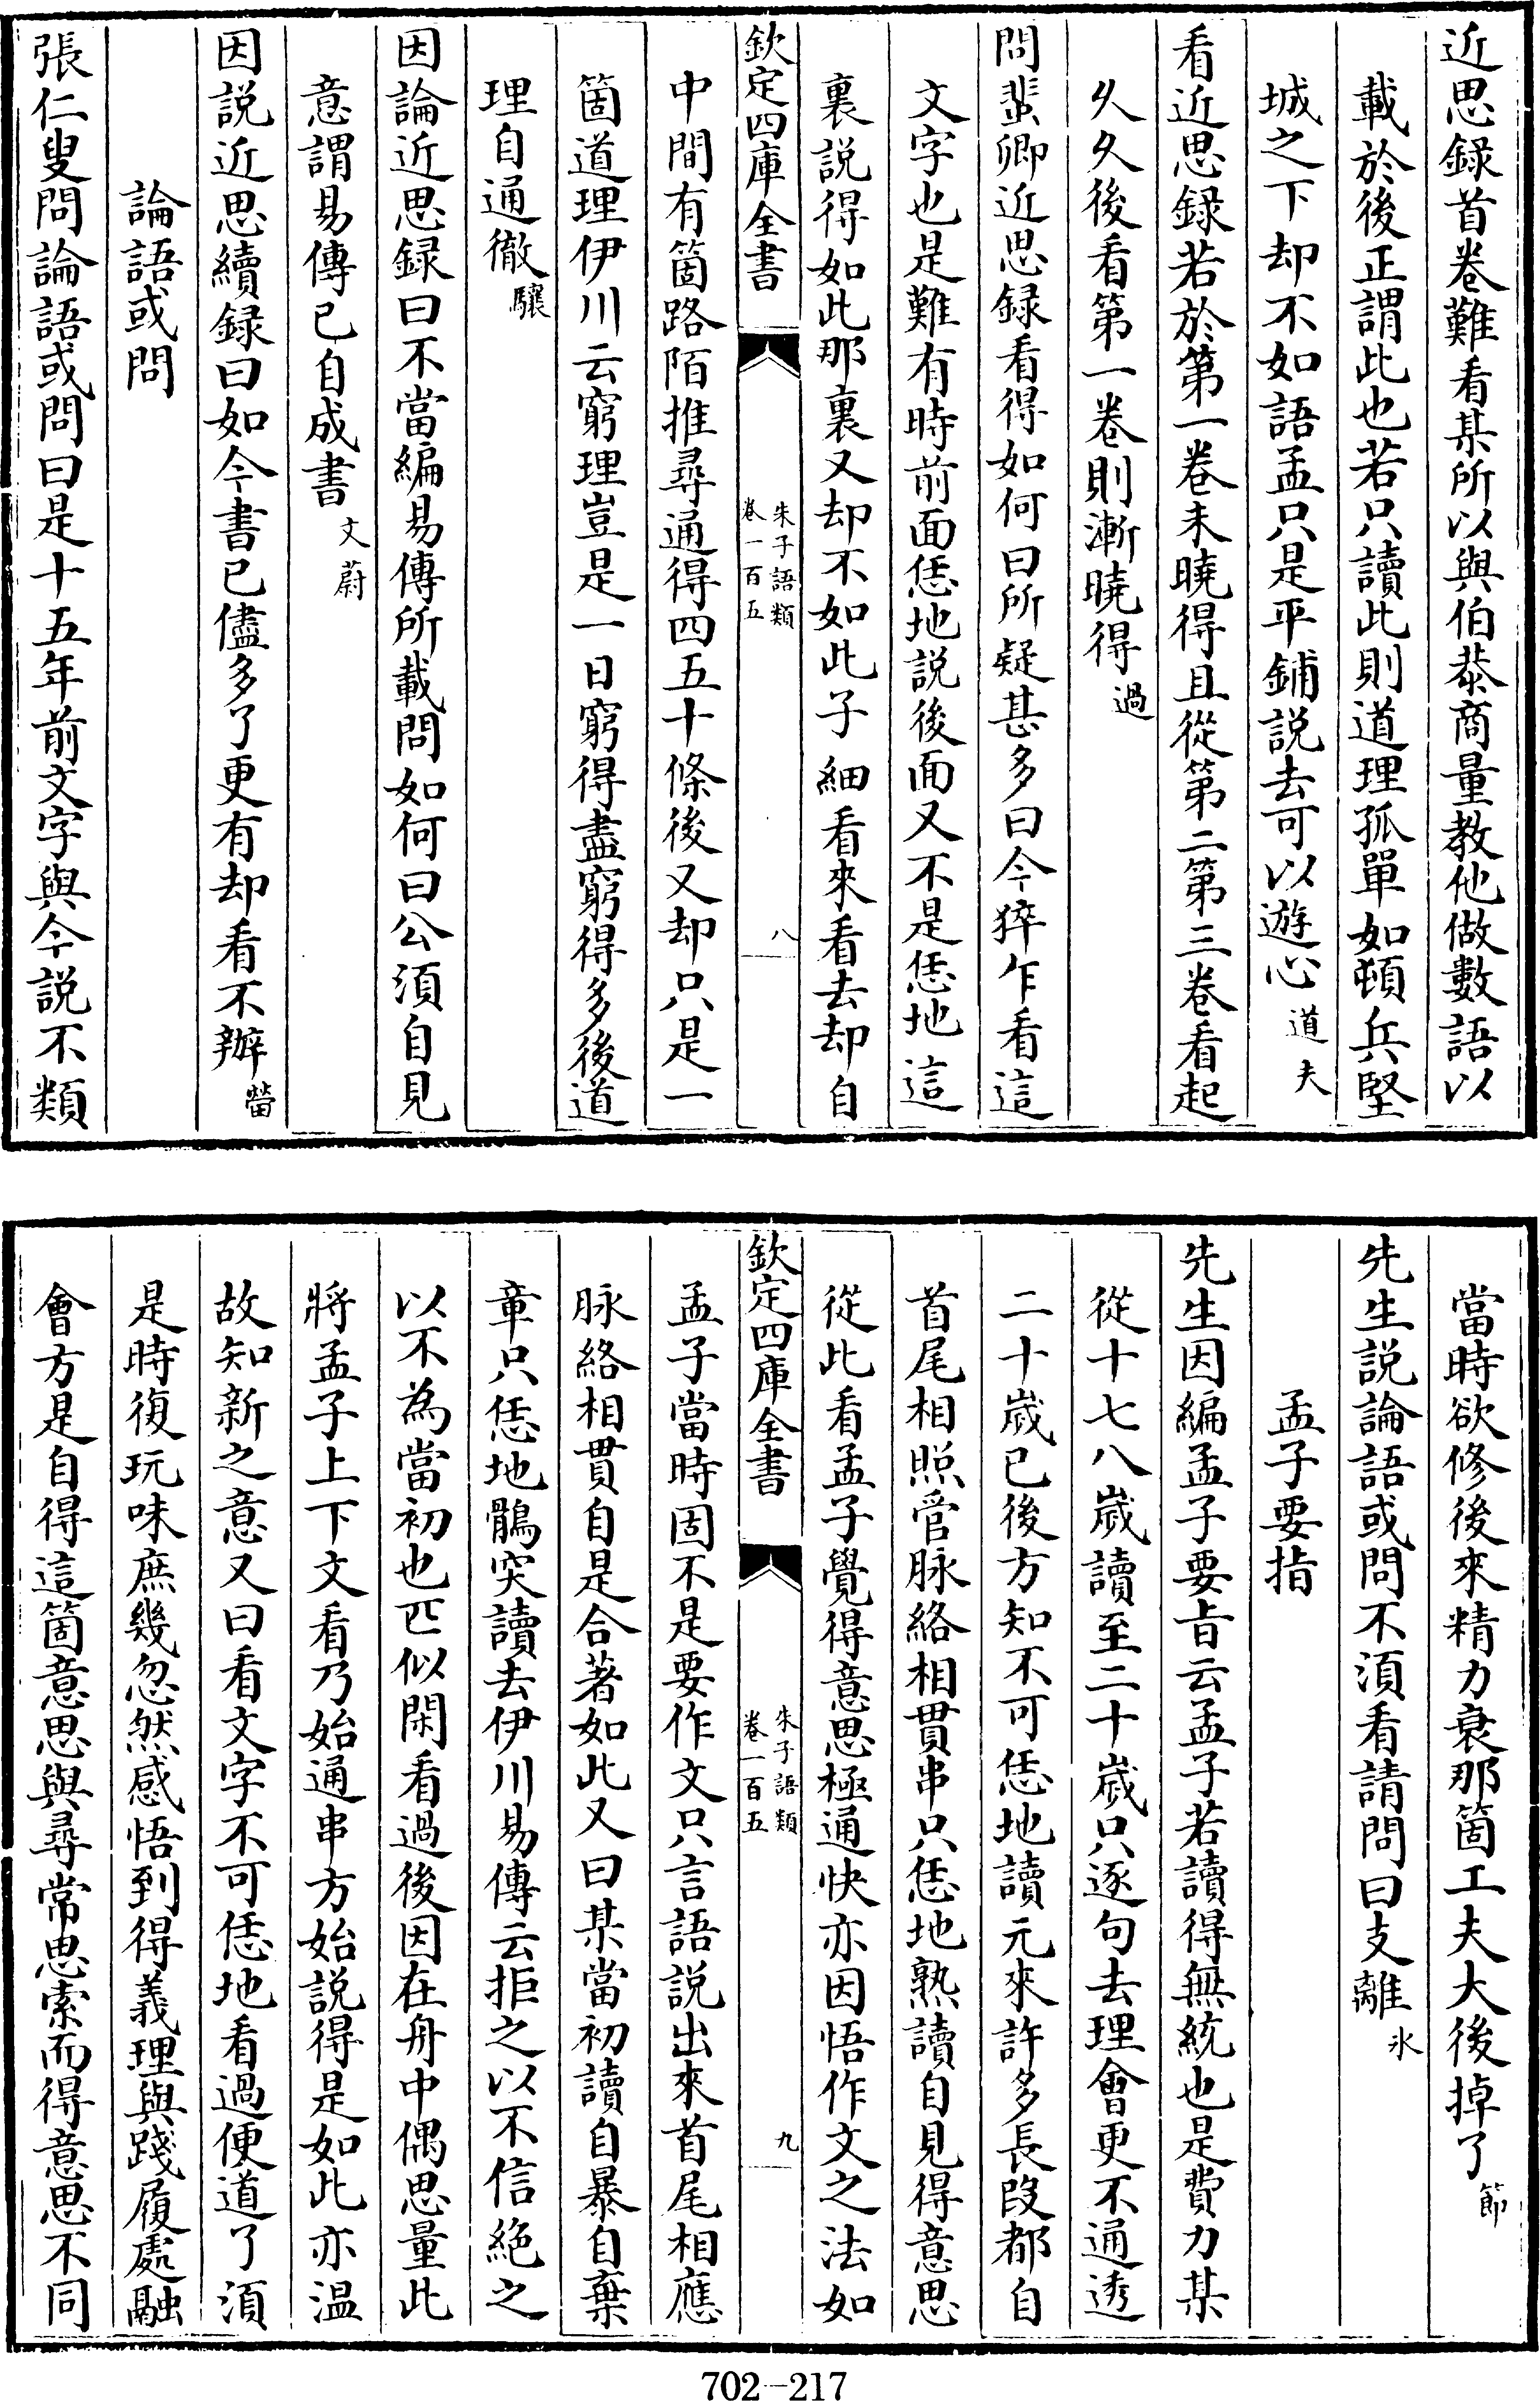 近思録首卷難看某所以與伯㳟商量教他做數語以
載於後正謂此也若只讀此則道理孤單如頓兵堅
城之下却不如語孟只是平鋪説去可以遊心道夫
看近思録若於第一卷未曉得且從第二第三卷看起
久久後看第一卷則漸曉得過
問蜚卿近思録看得如何曰所疑甚多曰今猝乍看這
文字也是難有時前面恁地説後面又不是恁地這
裏説得如此那裏又却不如此子細看來看去却自
欽定四庫全書
朱子語類
卷一百五
八
中間有箇路陌推尋通得四五十條後又却只是一
箇道理伊川云窮理豈是一日窮得盡窮得多後道
理自通徹驤
因論近思録曰不當編易傳所載問如何曰公須自見
意謂易傳已自成書文蔚
因説近思續録曰如今書已儘多了更有却看不辦㽦
論語或問
張仁叟問論語或問曰是十五年前文字與今説不類
當時欲修後來精力衰那箇工夫大後掉了節
先生説論語或問不須看請問曰支離泳
孟子要指
先生因編孟子要㫖云孟子若讀得無統也是費力某
從十七八歲讀至二十歲只逐句去理會更不通透
二十歲已後方知不可恁地讀元來許多長段都自
首尾相照管脉絡相貫串只恁地熟讀自見得意思
從此看孟子覺得意思極通快亦因悟作文之法如
欽定四庫全書
朱子語類
卷一百五
九
孟子當時固不是要作文只言語説出來首尾相應
脉絡相貫自是合著如此又曰某當初讀自暴自棄
章只恁地鶻突讀去伊川易傳云拒之以不信絶之
以不為當初也匹似閑看過後因在舟中偶思量此
將孟子上下文看乃始通串方始説得是如此亦温
故知新之意又曰看文字不可恁地看過便道了須
是時復玩味庶幾忽然感悟到得義理與踐履處融
會方是自得這箇意思與尋常思索而得意思不同
702-217